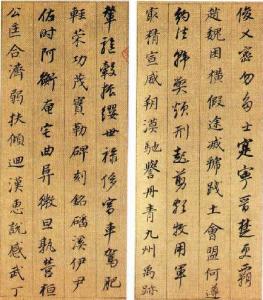 俊乂密勿多士寔寧晉楚更霸
趙魏困橫假途滅虢踐土會盟何遵
約法韓弊煩刑起翦頗牧用軍
最精宣威朔漠馳譽丹青九州禹跡
輦驅轂振纓世祿侈富車駕肥
輕策功茂實勒碑刻銘磻溪伊尹
佐時阿衡奄宅曲阜微旦孰營桓
公匡合濟弱扶傾迴漢惠說感武丁